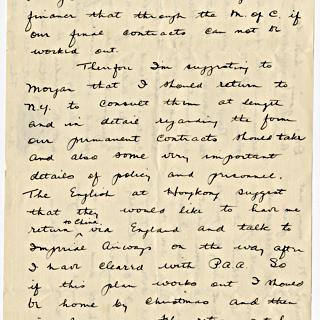 finance that through the M. of C. if
our final contracts can not be
worked out.
Therefore I'm suggesting to
Morgan that I should return to
N.Y. to consult them at length
and in detail regarding the form
our permanent contracts should take
and also some very important
details of policy and personnel.
The English at Hongkong suggest
that they would like to have me
return to China via England and talk to
Imperial Airways on the way after
I have cleared with P.A.A. So
if this plan works out I should
be home by Christmas and then